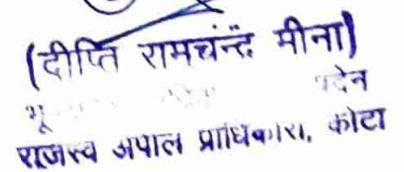 (दीप्ति रामचंन्द्र मीना)
भू
पदेन
राजस्व अपील प्राधिकारी, कोटा